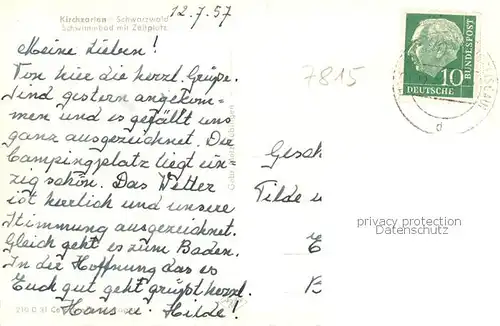 12.7.57
Kirchzarten - Schwarzwald
Schwimmbad mit Zeltplatz
Meine Lieben!
Von hier die herzl. Grüße.
Sind gestern angekom-
men und es gefällt uns
ganz ausgezeichnet. Der
Campingplatz liegt ein-
zig schön. Das Wetter
ist herrlich und unsere
Stimmung ausgezeichnet.
Gleich geht es zum Baden.
In die Hoffnung das es
Euch gut geht grüßt herzl.
Hans u. Hilde!
7815
10
DEUTSCHE
BUNDESPOST
Gesch
Tilde u
privacy protection
Datenschutz